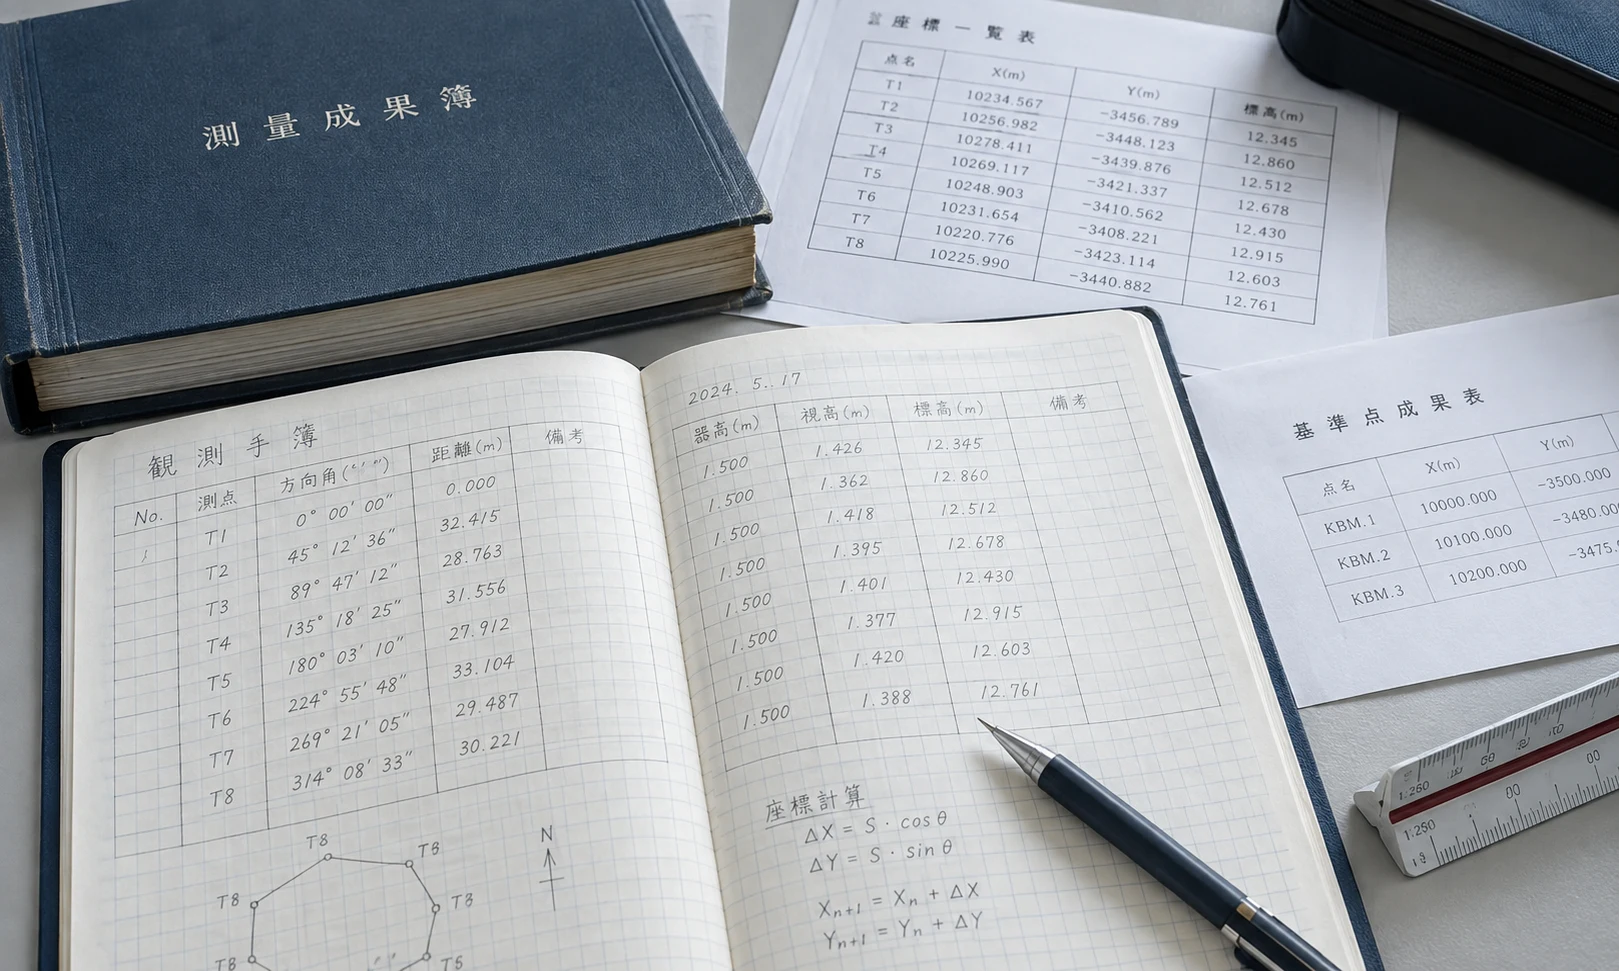 測量成果簿
座標一覧表
点名 X(m) Y(m) 標高(m)
T1 10234.567 -3456.789 12.345
T2 10256.982 -3448.123 12.860
T3 10278.411 -3439.876 12.512
T4 10269.117 -3421.337 12.678
T5 10248.903 -3410.562 12.430
T6 10231.654 -3408.221 12.915
T7 10220.776 -3423.114 12.603
T8 10225.990 -3440.882 12.761
基準点成果表
点名 X(m) Y(m)
KBM.1 10000.000 -3500.000
KBM.2 10100.000 -3480.00
KBM.3 10200.000 -3475.
観測手簿
No. 測点 方向角(° ′ ″) 距離(m) 備考
T1 0° 00′ 00″ 0.000
T2 45° 12′ 36″ 32.415
T3 89° 47′ 12″ 28.763
T4 135° 18′ 25″ 31.556
T5 180° 03′ 10″ 27.912
T6 224° 55′ 48″ 33.104
T7 269° 21′ 05″ 29.487
T8 314° 08′ 33″ 30.221
T8
T8
T8
T8
T5
N
2024. 5..17
器高(m) 視高(m) 標高(m) 備考
1.500 1.426 12.345
1.500 1.362 12.860
1.500 1.418 12.512
1.500 1.395 12.678
1.500 1.401 12.430
1.500 1.377 12.915
1.500 1.420 12.603
1.500 1.388 12.761
座標計算
ΔX = S · cos θ
ΔY = S · sin θ
Xn+1 = Xn + ΔX
Yn+1 = Yn + ΔY
1:250
1:250